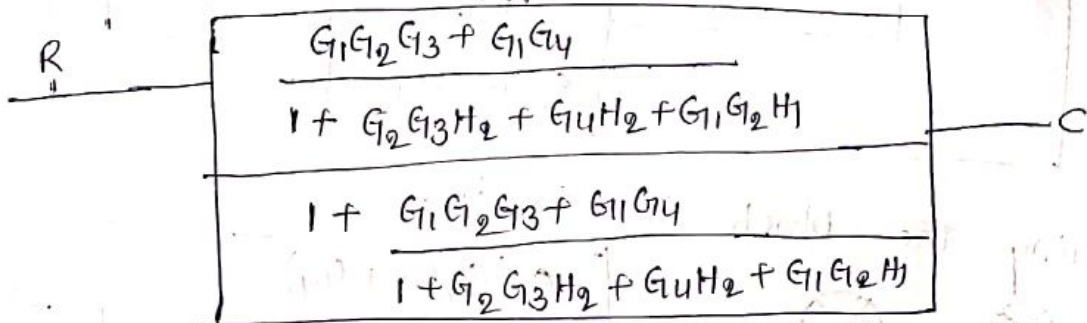 R
G1G2G3 + G1G4
1 + G2G3H2 + G4H2 + G1G2H1
C
1 + G1G2G3 + G1G4
1 + G2G3H2 + G4H2 + G1G2H1